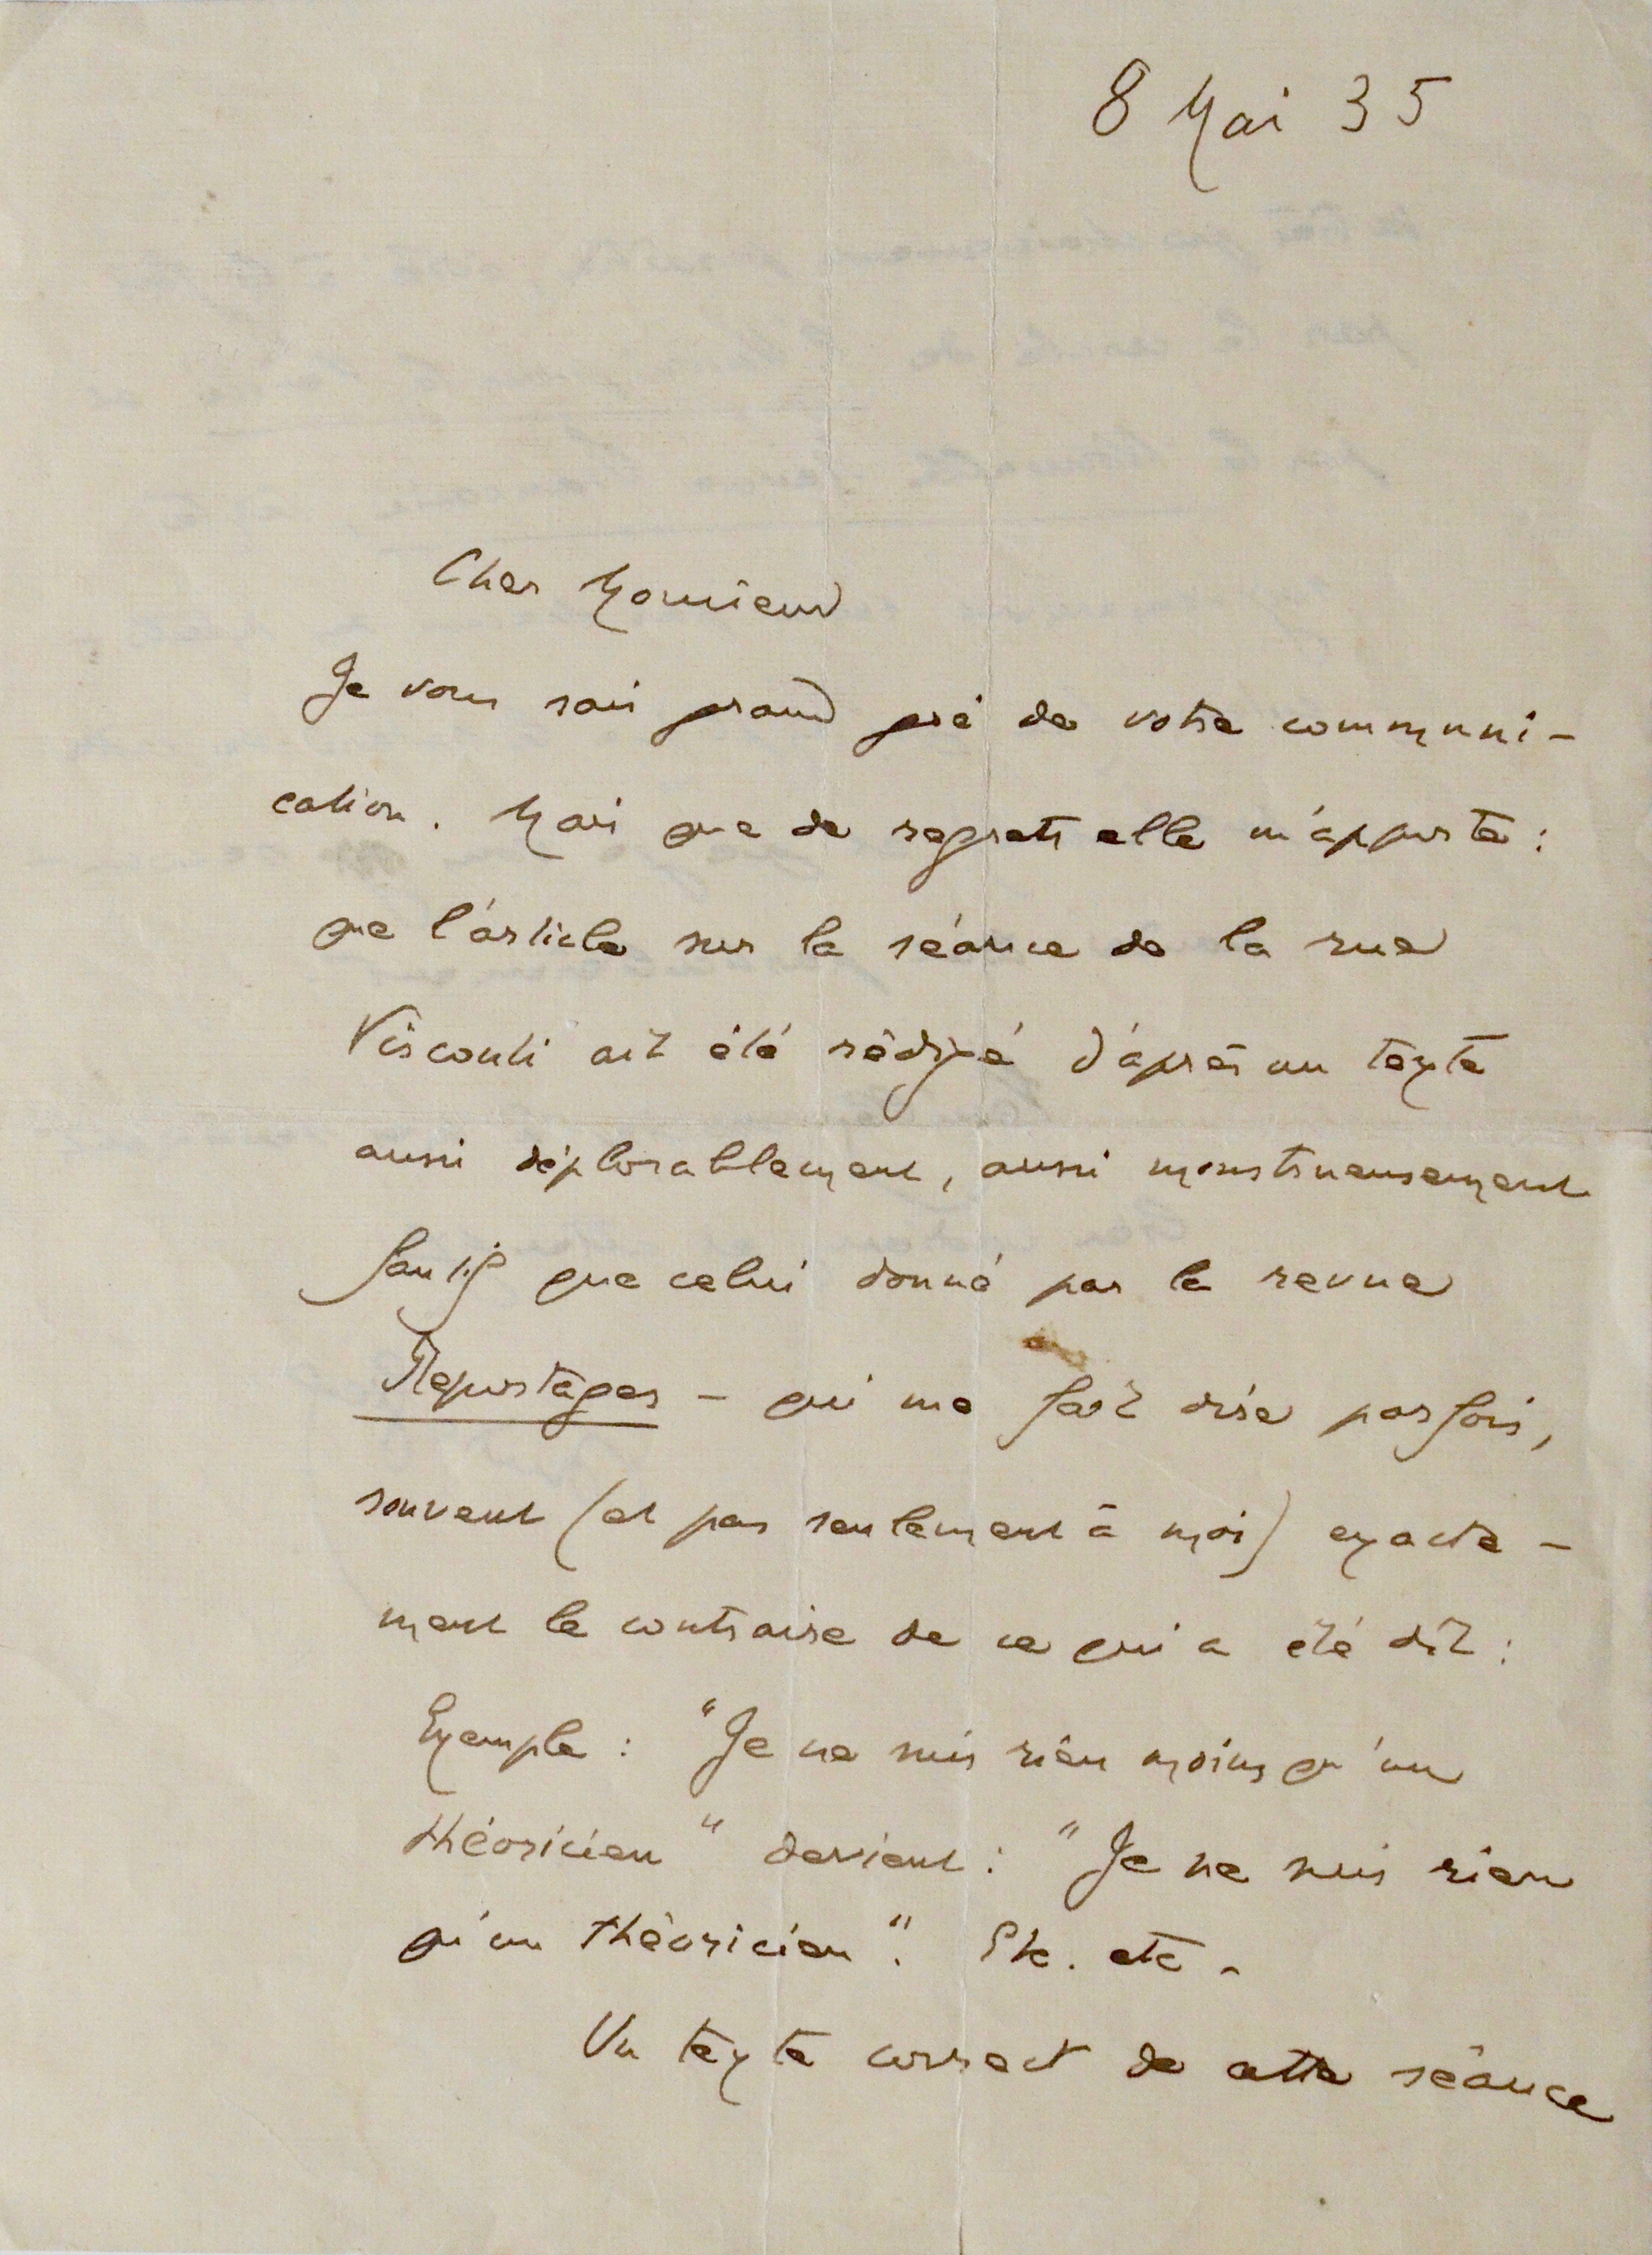 8 Mai 35
Cher Monsieur
Je vous sais grand gré de votre communi-
cation. Mais que de regrets elle m'apporte :
que l'article sur la séance de la rue
Visconti ait été rédigé d'après un texte
aussi déplorablement, aussi monstrueusement
fautif que celui donné par la revue
Reportages - qui me fait dire parfois,
souvent (et pas seulement à moi) exacte -
ment le contraire de ce qui a été dit :
Exemple : "Je ne suis rien moins qu'un
théoricien" devient : "Je ne suis rien
qu'un théoricien". Etc. etc -
Un texte correct de cette séance